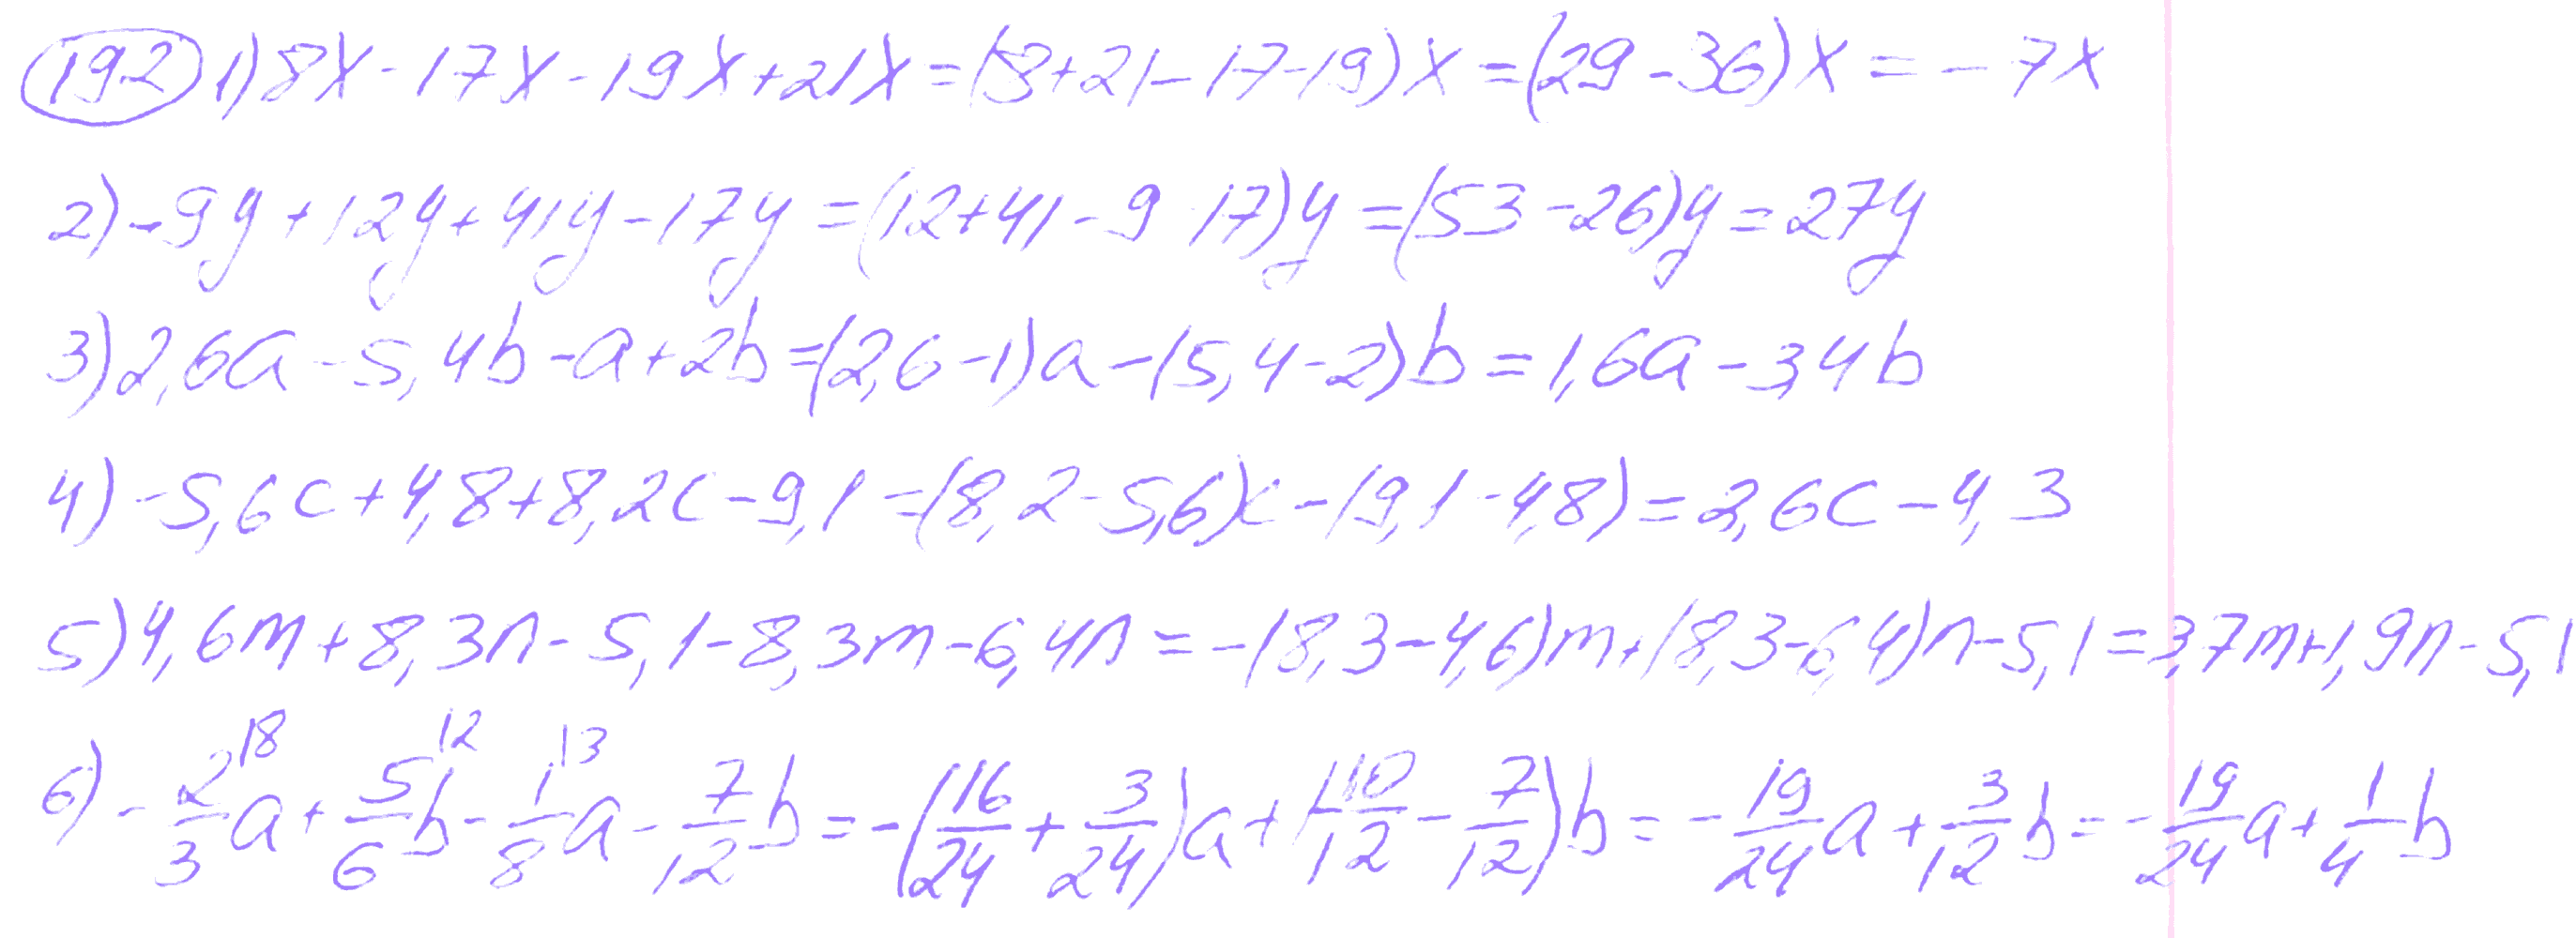 192 1) 8x - 17x - 19x + 21x = (8 + 21 - 17 - 19)x = (29 - 36)x = - 7x
2) - 9y + 12y + 41y - 17y = (12 + 41 - 9 17)y = (53 - 26)y = 27y
3) 2,6a - 5,4b - a + 2b = (2,6 - 1)a - (5,4 - 2)b = 1,6a - 3,4b
4) - 5,6c + 4,8 + 8,2c - 9,1 = (8,2 - 5,6)c - (9,1 - 4,8) = 2,6c - 4,3
5) 4,6m + 8,3n - 5,1 - 8,3m - 6,4n = - (8,3 - 4,6)m + (8,3 - 6,4)n - 5,1 = 3,7m + 1,9n - 5,1
6) - 2/3^{18} a + 5/6^{12} b - 1/8^{13} a - 7/12 b = - (16/24 + 3/24)a + (10/12 - 7/12)b = - 19/24 a + 3/12 b = - 19/24 a + 1/4 b